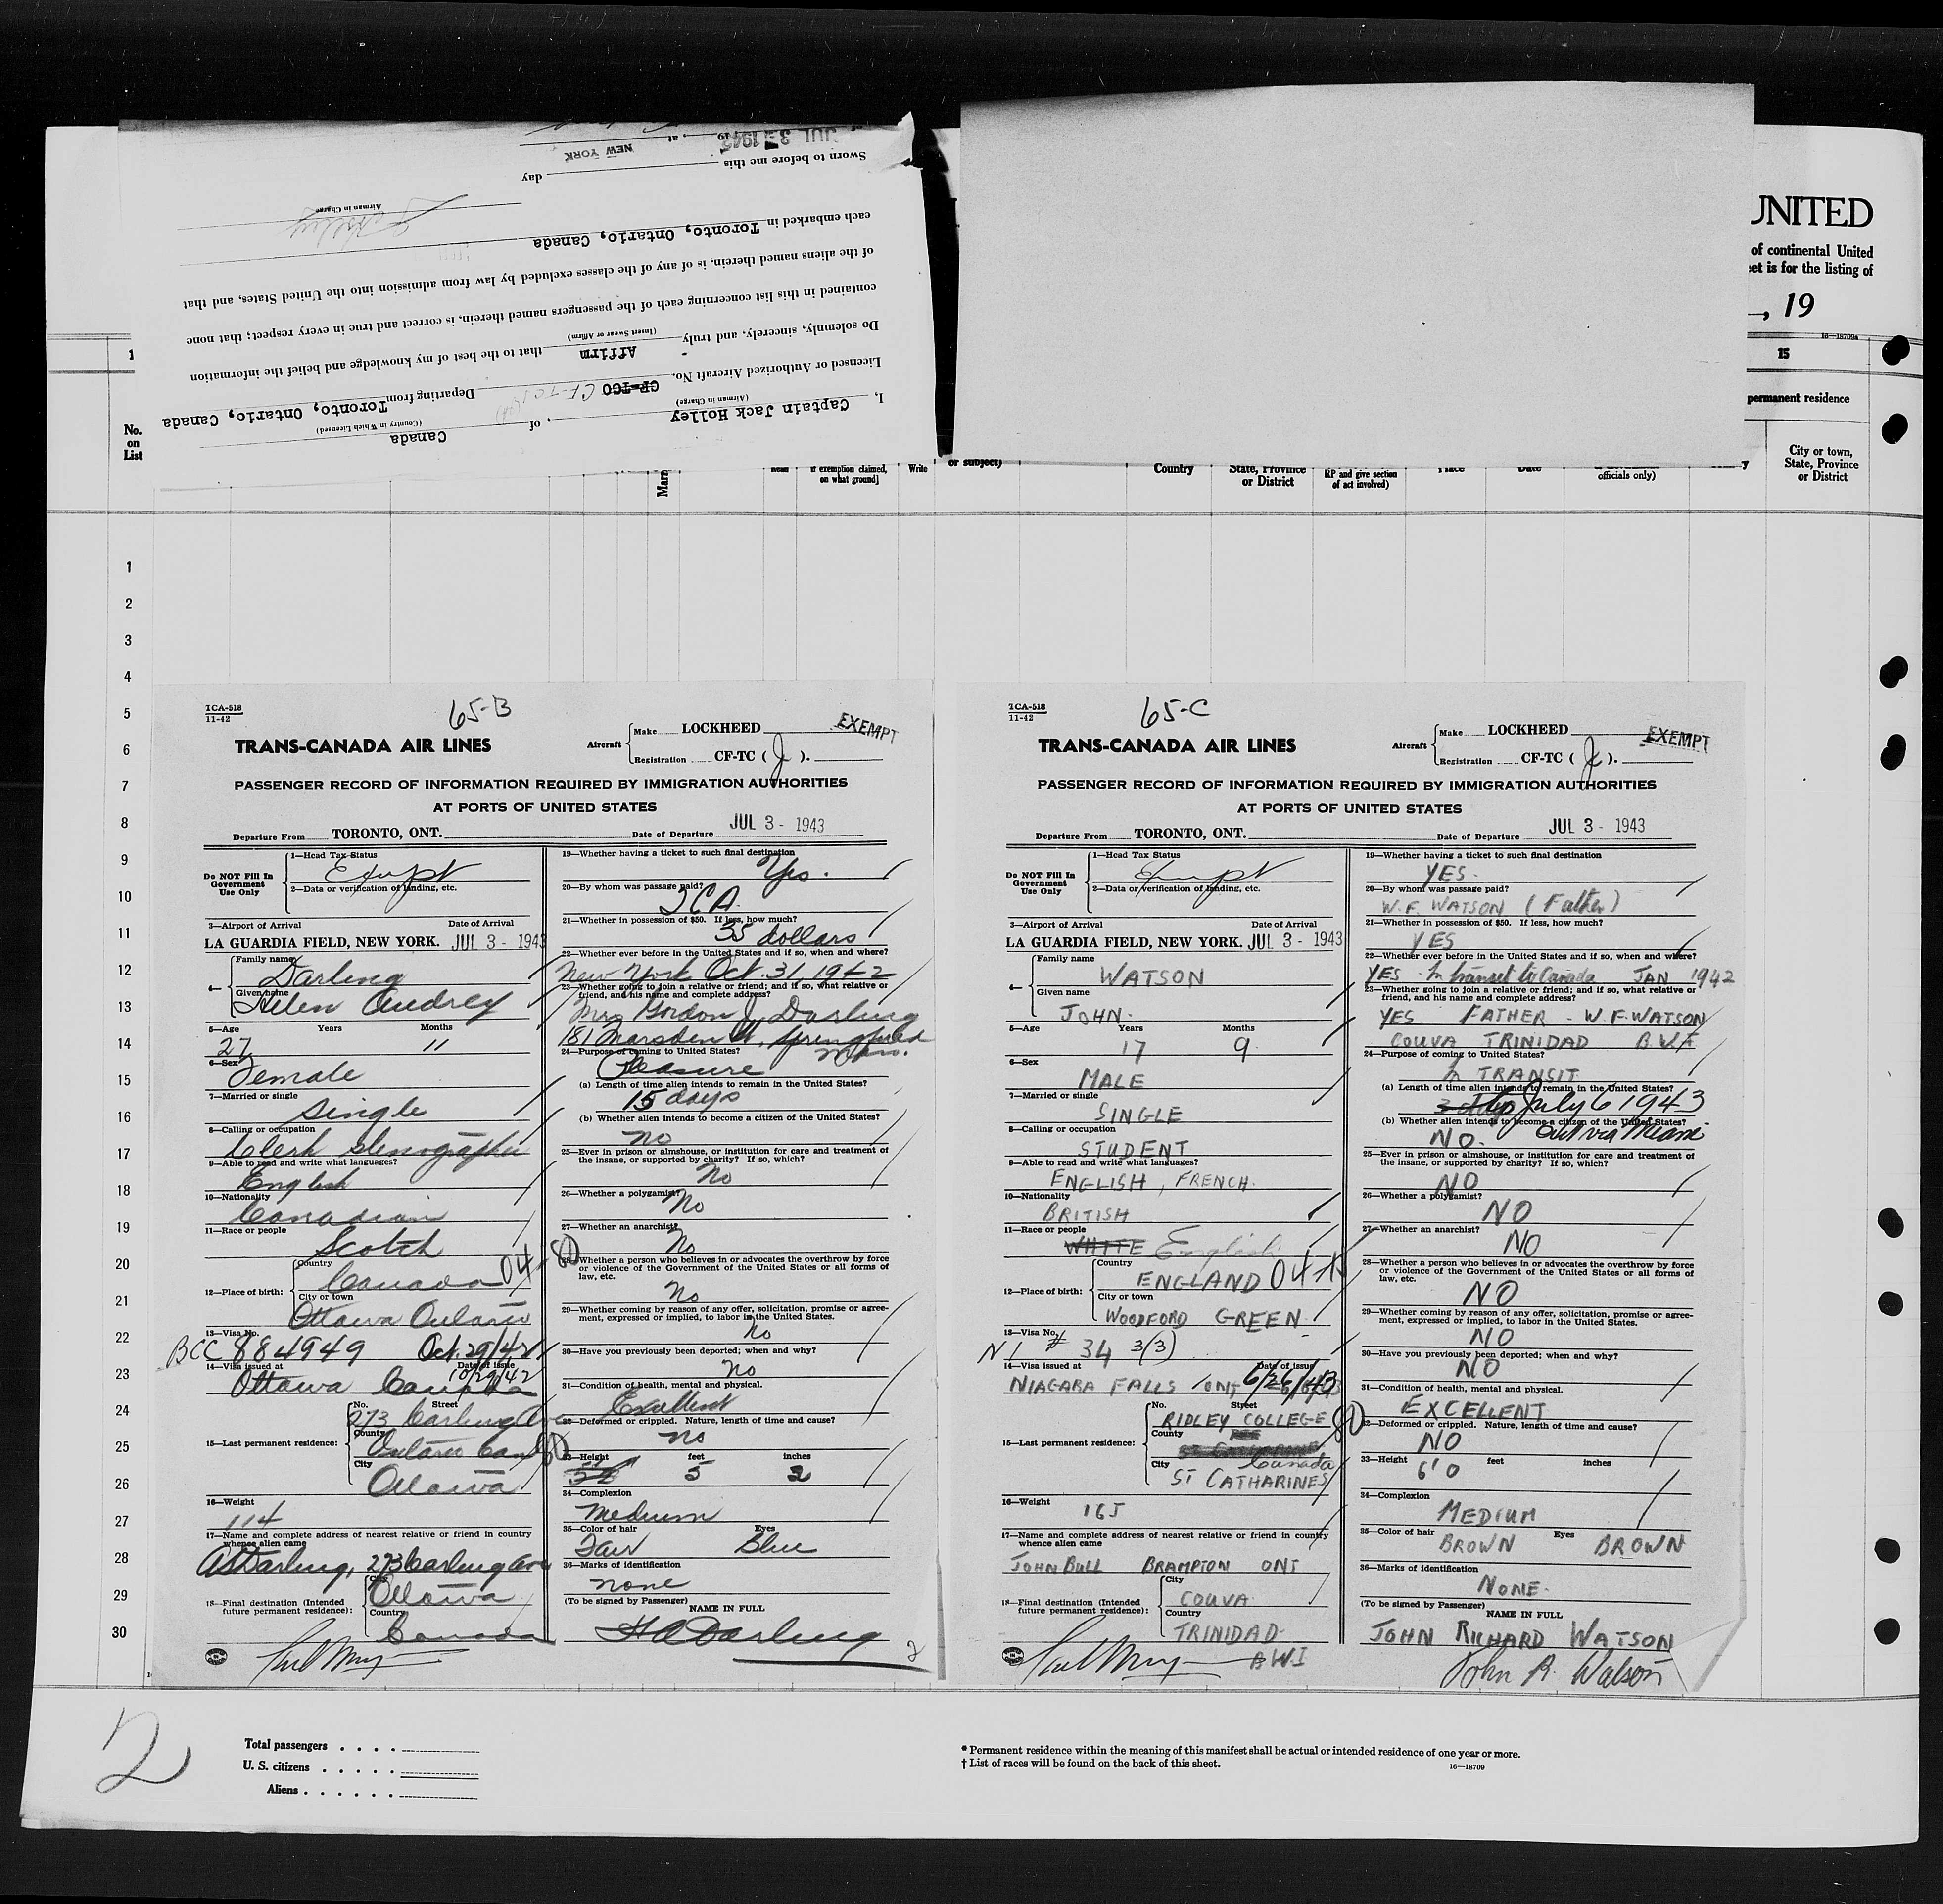 UNITED
of continental United
et is for the listing of
, 19
16—18709a
1
15
permanent residence
No.
on
List
City or town,
State, Province
or District
Marr
if exemption claimed,
on what ground]
Write
or subject)
Country
State, Province
or District
RP and give section
of act involved)
Place
Date
officials only)
y
I, Captain Jack Holley, of Canada
(Airman in Charge) (Country in Which Licensed)
Licensed or Authorized Aircraft No. CF-TCO CF-TCJ Departing from Toronto, Ontario, Canada
Do solemnly, sincerely, and truly Affirm that to the best of my knowledge and belief the information
(Insert Swear or Affirm)
contained in this list concerning each of the passengers named therein, is correct and true in every respect; that none
of the aliens named therein, is of any of the classes excluded by law from admission into the United States, and that
each embarked in Toronto, Ontario, Canada
Airman in Charge
Sworn to before me this day
of JUL 3 - 1943 19 , at NEW YORK
1
2
3
4
5
6
7
8
9
10
11
12
13
14
15
16
17
18
19
20
21
22
23
24
25
26
27
28
29
30
TCA-518
11-42
65-B
TRANS-CANADA AIR LINES
Aircraft
Make LOCKHEED
Registration CF-TC ( J ).
EXEMPT
PASSENGER RECORD OF INFORMATION REQUIRED BY IMMIGRATION AUTHORITIES
AT PORTS OF UNITED STATES
Departure From TORONTO, ONT. Date of Departure JUL 3 - 1943
Do NOT Fill In
Government
Use Only
1—Head Tax Status
Exempt
2—Data or verification of landing, etc.
3—Airport of Arrival Date of Arrival
LA GUARDIA FIELD, NEW YORK. JUL 3 - 1943
4—
Family name
Darling
Given name
Helen Audrey
5—Age Years Months
27 11
6—Sex
Female
7—Married or single
Single
8—Calling or occupation
Clerk Stenographer
9—Able to read and write what languages?
English
10—Nationality
Canadian
11—Race or people
Scotch
12—Place of birth:
Country
Canada 04-80
City or town
Ottawa Ontario
13—Visa No.
BCC 884949 Oct. 29/42
14—Visa issued at Date of issue
Ottawa Canada 10/29/42
15—Last permanent residence:
No. Street
273 Carling Ave
County
Ontario Can 80
City
Ottawa
16—Weight
114
17—Name and complete address of nearest relative or friend in country
whence alien came
A S Darling, 273 Carling Ave
18—Final destination (Intended
future permanent residence):
City
Ottawa
Country
Canada
19—Whether having a ticket to such final destination
Yes.
20—By whom was passage paid?
TCA.
21—Whether in possession of $50. If less, how much?
35 dollars
22—Whether ever before in the United States and if so, when and where?
New York Oct. 31, 1942
23—Whether going to join a relative or friend; and if so, what relative or
friend, and his name and complete address?
Mrs Gordon J. Darling
181 Marsden St, Springfield
Mass.
24—Purpose of coming to United States?
Pleasure
(a) Length of time alien intends to remain in the United States?
15 days
(b) Whether alien intends to become a citizen of the United States?
no
25—Ever in prison or almshouse, or institution for care and treatment of
the insane, or supported by charity? If so, which?
No
26—Whether a polygamist?
No
27—Whether an anarchist?
No
Whether a person who believes in or advocates the overthrow by force
or violence of the Government of the United States or all forms of
law, etc.
No
29—Whether coming by reason of any offer, solicitation, promise or agree-
ment, expressed or implied, to labor in the United States.
No
30—Have you previously been deported; when and why?
no
31—Condition of health, mental and physical.
Excellent
32—Deformed or crippled. Nature, length of time and cause?
no
33—Height feet inches
5 2
34—Complexion
Medium
35—Color of hair Eyes
Fair Blue
36—Marks of identification
none
(To be signed by Passenger) NAME IN FULL
H A Darling
2
TCA-518
11-42
65-C
TRANS-CANADA AIR LINES
Aircraft
Make LOCKHEED
Registration CF-TC ( J ).
EXEMPT
PASSENGER RECORD OF INFORMATION REQUIRED BY IMMIGRATION AUTHORITIES
AT PORTS OF UNITED STATES
Departure From TORONTO, ONT. Date of Departure JUL 3 - 1943
Do NOT Fill In
Government
Use Only
1—Head Tax Status
Exempt
2—Data or verification of landing, etc.
3—Airport of Arrival Date of Arrival
LA GUARDIA FIELD, NEW YORK. JUL 3 - 1943
4—
Family name
WATSON
Given name
JOHN.
5—Age Years Months
17 9.
6—Sex
MALE
7—Married or single
SINGLE
8—Calling or occupation
STUDENT
9—Able to read and write what languages?
ENGLISH, FRENCH.
10—Nationality
BRITISH
11—Race or people
WHITE English
12—Place of birth:
Country
ENGLAND 04
City or town
WOODFORD GREEN.
13—Visa No.
NI # 34 3/(3)
14—Visa issued at Date of issue
NIAGARA FALLS ONT 6/26/43
15—Last permanent residence:
No. Street
RIDLEY COLLEGE 80
County
Canada
City
ST CATHARINES
16—Weight
165
17—Name and complete address of nearest relative or friend in country
whence alien came
JOHN BULL BRAMPTON ONT
18—Final destination (Intended
future permanent residence):
City
COUVA
Country
TRINIDAD
BWI
19—Whether having a ticket to such final destination
YES.
20—By whom was passage paid?
W. F. WATSON (Father)
21—Whether in possession of $50. If less, how much?
YES
22—Whether ever before in the United States and if so, when and where?
YES - In transit to Canada JAN 1942
23—Whether going to join a relative or friend; and if so, what relative or
friend, and his name and complete address?
YES FATHER - W. F. WATSON
COUVA TRINIDAD BWI
24—Purpose of coming to United States?
In TRANSIT
(a) Length of time alien intends to remain in the United States?
3 days to July 6 1943
(b) Whether alien intends to become a citizen of the United States?
NO. Out via Miami
25—Ever in prison or almshouse, or institution for care and treatment of
the insane, or supported by charity? If so, which?
NO
26—Whether a polygamist?
NO
27—Whether an anarchist?
NO
28—Whether a person who believes in or advocates the overthrow by force
or violence of the Government of the United States or all forms of
law, etc.
NO
29—Whether coming by reason of any offer, solicitation, promise or agree-
ment, expressed or implied, to labor in the United States.
NO
30—Have you previously been deported; when and why?
NO
31—Condition of health, mental and physical.
EXCELLENT
32—Deformed or crippled. Nature, length of time and cause?
NO
33—Height feet inches
6'0
34—Complexion
MEDIUM
35—Color of hair Eyes
BROWN BROWN
36—Marks of identification
NONE.
(To be signed by Passenger) NAME IN FULL
JOHN RICHARD WATSON
John R. Watson
2
Total passengers
U. S. citizens
Aliens
* Permanent residence within the meaning of this manifest shall be actual or intended residence of one year or more.
† List of races will be found on the back of this sheet.
16—18709